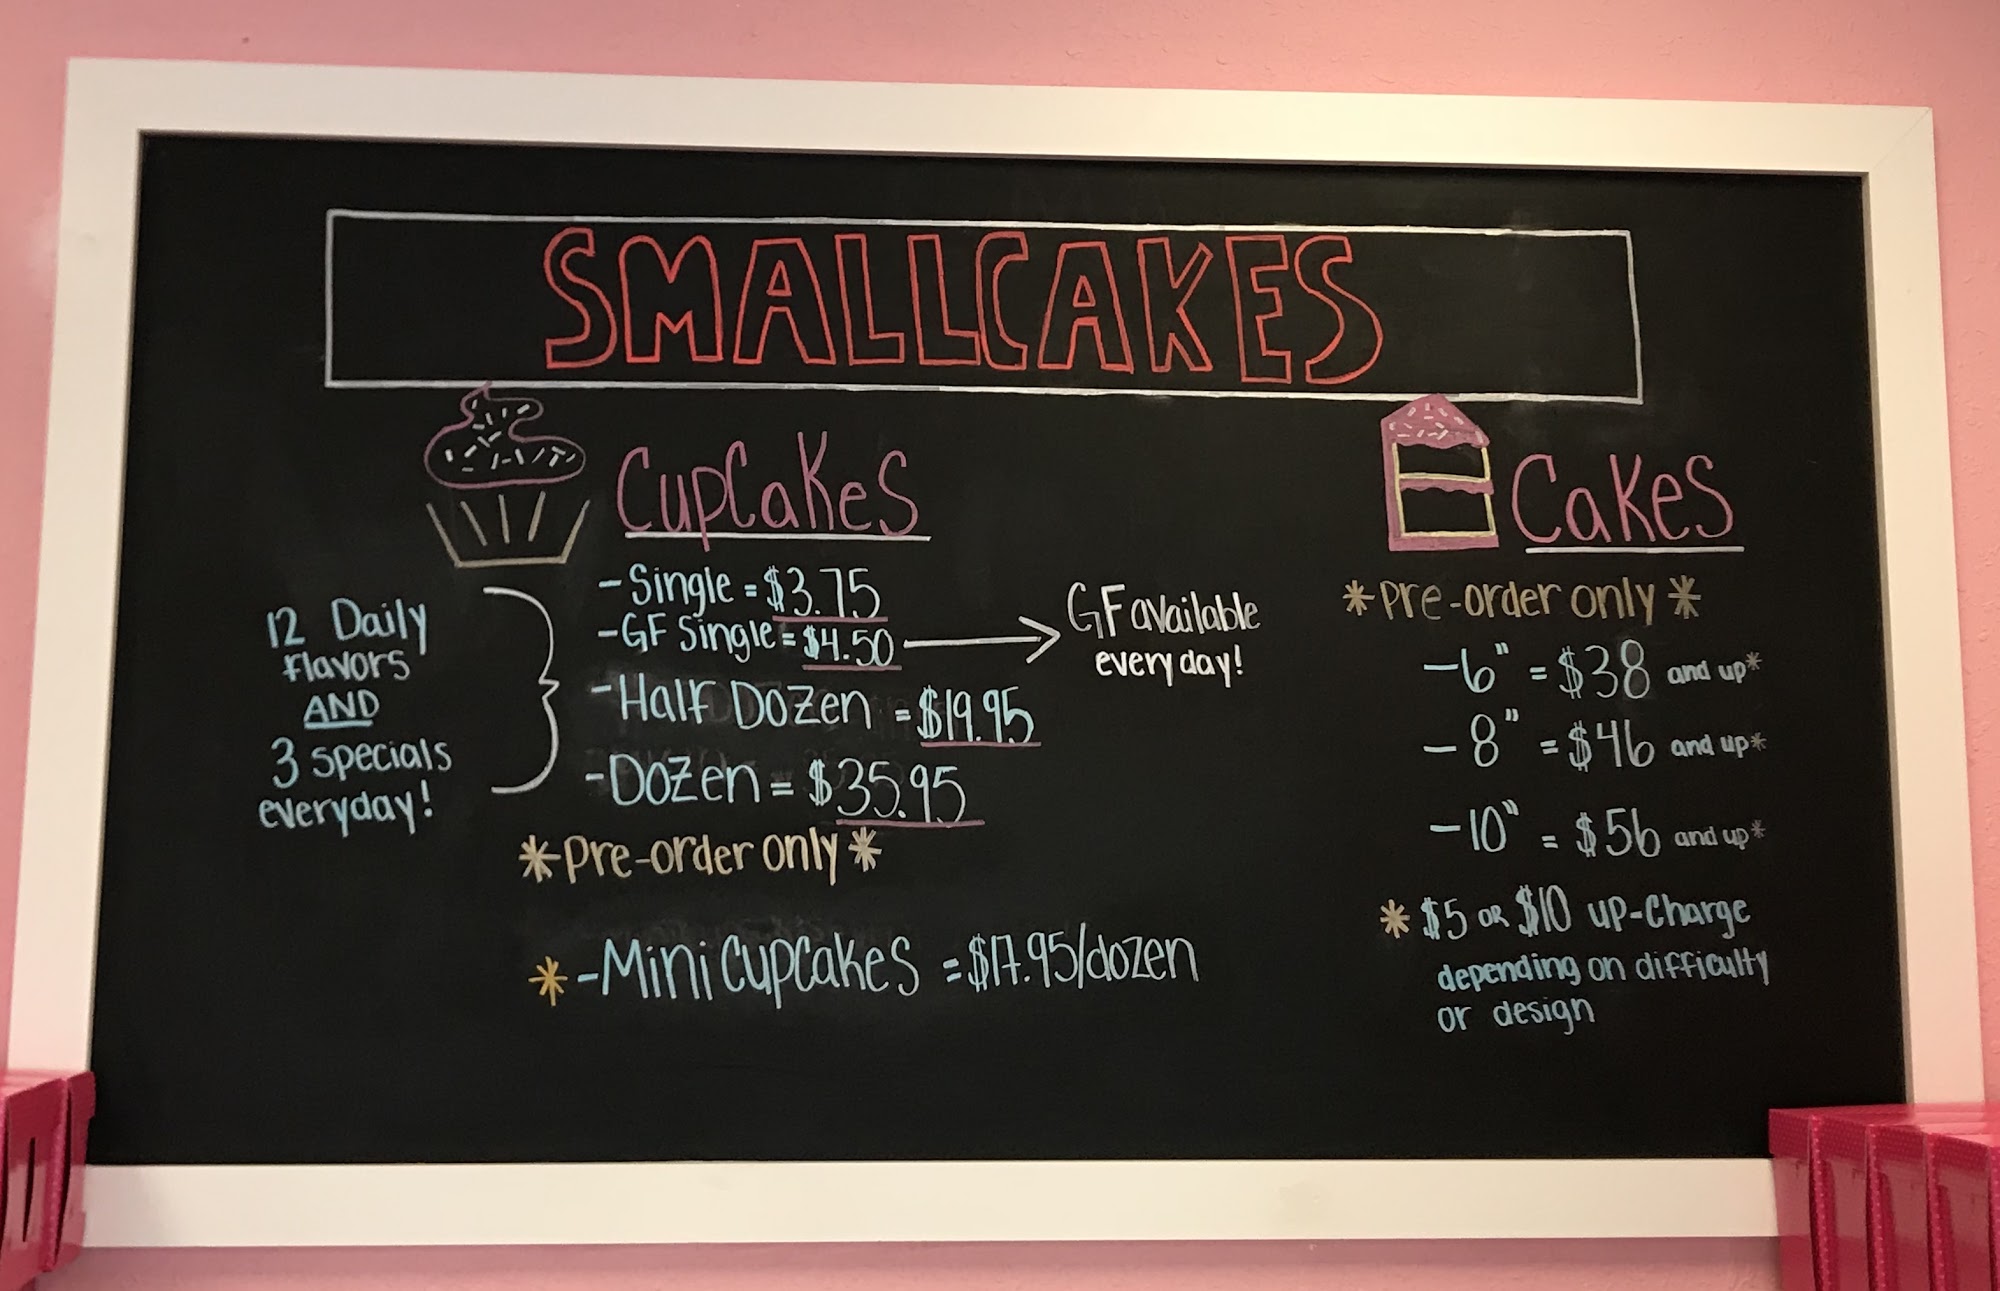 SMALLCAKES
12 Daily
flavors
AND
3 specials
everyday!
CupCakes
-Single = $3.75
-GF Single = $4.50
GF available
every day!
-Half Dozen = $19.95
-Dozen = $35.95
*Pre-order only*
*-Mini Cupcakes = $17.95/dozen
Cakes
*Pre-order only*
-6" = $38 and up*
-8" = $46 and up*
-10" = $56 and up*
*$5 or $10 up-charge
depending on difficulty
or design